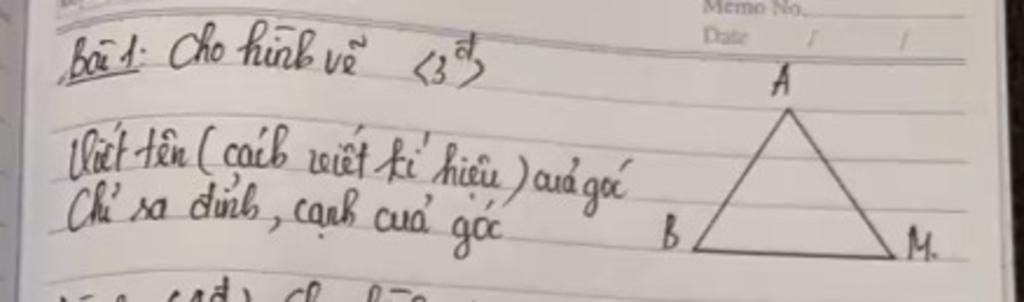 Memo No.
Date / /
Bài 1: Cho hình vẽ <3đ>
A
Viết tên (cách viết kí hiệu) của góc
Chỉ ra đỉnh, cạnh của góc
B
M.